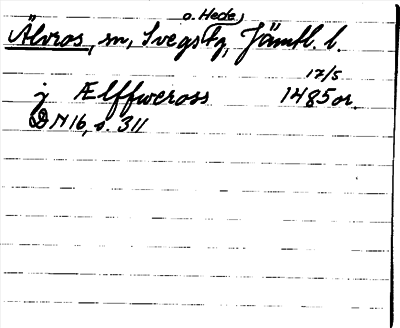 o. Hede,
Älvros, sn, Svegs tg, Jämtl. l.
17/5
j Ælffweross 1485 or.
DN 16, s. 311